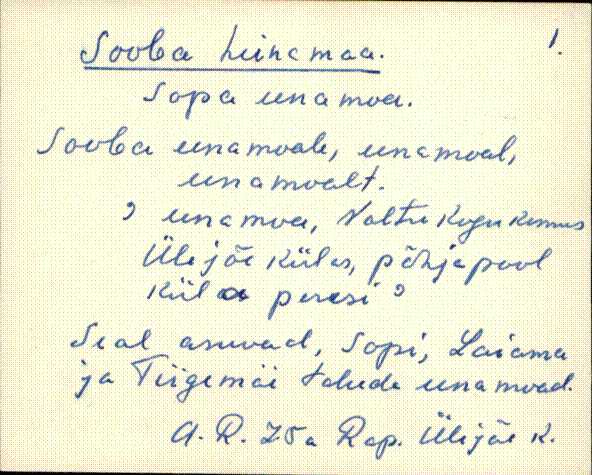 1.
Sooba hinamaa.
Sopa unamoa.
Sooba unamoale, unamoal,
unamoalt.
, unamoa, Valtu Kogukonnas
Ülejõe Külas, põhjapool
küla peresi ,
Seal asuvad, Sopi, Laiama
ja Tiigemäe talude unamoad.
A. R. 75a Rap. Ülejõe K.